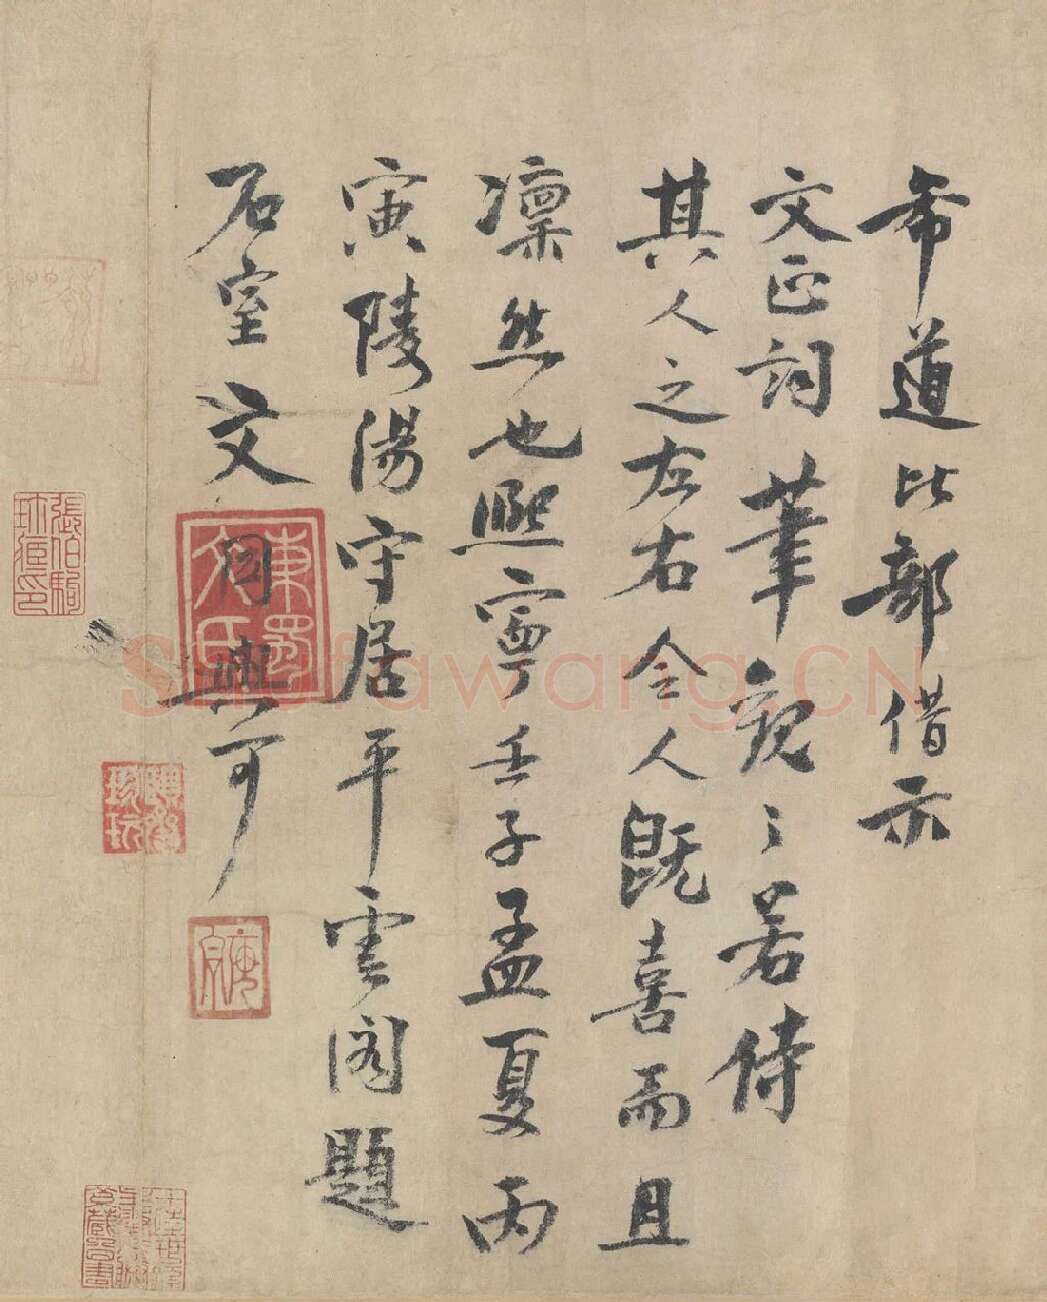 希道比部借示
文正詞筆觀々若侍
其人之左右令人既喜而且
凜然也熙寧壬子孟夏丙
寅陵陽守居平雲閣題
石室文同與可
東蜀文氏
張伯駒珍藏印
Shufawang.CN